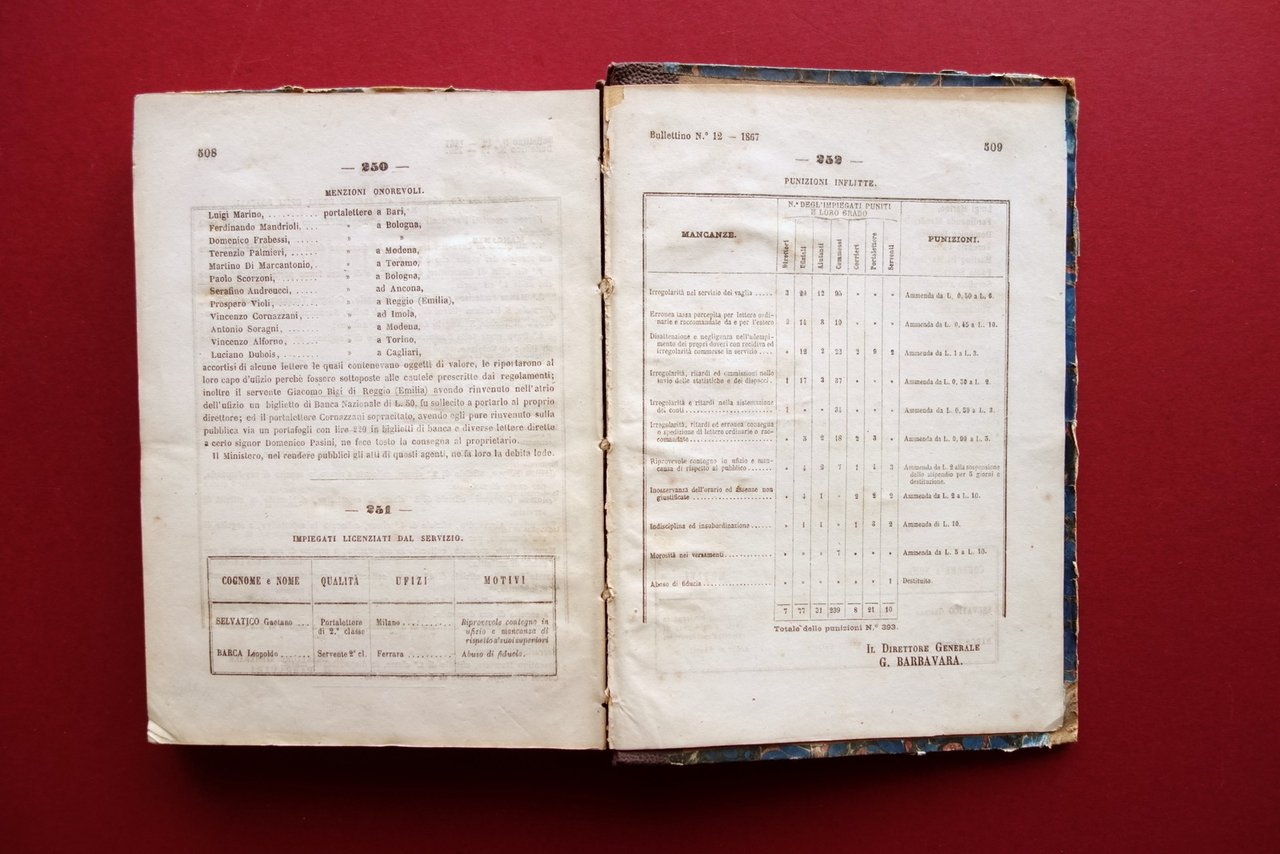 508
— 250 —
MENZIONI ONOREVOLI.
Luigi Marino, . . . . . . . . . . . portalettere a Bari,
Ferdinando Mandrioli. . . . » a Bologna,
Domenico Frabessi, . . . . . » »
Terenzio Palmieri, . . . . . . » a Modena,
Martino Di Marcantonio, . » a Teramo,
Paolo Scorzoni, . . . . . . . . » a Bologna,
Serafino Andreucci, . . . . . » ad Ancona,
Prospero Violi, . . . . . . . . » a Reggio (Emilia),
Vincenzo Cornazzani, . . . . » ad Imola,
Antonio Soragni, . . . . . . . » a Modena,
Vincenzo Alforno, . . . . . . » a Torino,
Luciano Dubois, . . . . . . . . » a Cagliari,
accortisi di alcune lettere le quali contenevano oggetti di valore, le riportarono al
loro capo d'ufizio perchè fossero sottoposte alle cautele prescritte dai regolamenti;
inoltre il servente Giacomo Bigi di Reggio (Emilia) avendo rinvenuto nell'atrio
dell'ufizio un biglietto di Banca Nazionale di L. 50, fu sollecito a portarlo al proprio
direttore; ed il portalettere Cornazzani sopracitato, avendo egli pure rinvenuto sulla
pubblica via un portafogli con lire 220 in biglietti di banca e diverse lettere dirette
a certo signor Domenico Pasini, ne fece tosto la consegna al proprietario.
Il Ministero, nel rendere pubblici gli atti di questi agenti, ne fa loro la debita lode.
— 251 —
IMPIEGATI LICENZIATI DAL SERVIZIO.
COGNOME e NOME QUALITÀ UFIZI MOTIVI
SELVATICO Gaetano . . . Portalettere di 2.ª classe Milano . . . . . . . . . . Riprovevole contegno in ufizio e mancanza di rispetto a' suoi superiori
BARCA Leopoldo . . . . . . . Servente 2ª cl. Ferrara . . . . . . . . . Abuso di fiducia.
Bullettino N.° 12 — 1867
509
— 252 —
PUNIZIONI INFLITTE.
MANCANZE. N.° DEGL'IMPIEGATI PUNITI E LORO GRADO PUNIZIONI.
Direttori Ufiziali Aiutanti Commessi Corrieri Portalettere Serventi
Irregolarità nel servizio dei vaglia . . . . . 3 20 12 95 » » » Ammenda da L. 0,50 a L. 6.
Erronea tassa percepita per lettere ordinarie e raccomandate da e per l'estero 2 14 8 19 » » » Ammenda da L. 0,45 a L. 10.
Disattenzione e negligenza nell'adempimento dei propri doveri con recidiva ed irregolarità commesse in servizio . . . » 12 2 23 2 9 2 Ammenda da L. 1 a L. 3.
Irregolarità, ritardi ed ommissioni nello invio delle statistiche e dei dispacci . 1 17 3 37 » » » Ammenda da L. 0,50 a L. 2.
Irregolarità e ritardi nella sistemazione dei conti . . . . . . . . . 1 » » 31 » » » Ammenda da L. 0,50 a L. 3.
Irregolarità, ritardi ed erronea consegna e spedizione di lettere ordinarie e raccomandate . . . . . . . . » 3 2 18 2 3 » Ammenda da L. 0,90 a L. 5.
Riprovevole contegno in ufizio e mancanza di rispetto al pubblico . . . . . . . » 4 2 7 1 4 3 Ammenda da L. 2 alla sospensione dello stipendio per 5 giorni e destituzione.
Inosservanza dell'orario ed assenze non giustificate . . . . . . . . » 4 1 » 2 2 2 Ammenda da L. 2 a L. 10.
Indisciplina ed insubordinazione . . . . . . » 1 1 » 1 3 2 Ammenda di L. 10.
Morosità nei versamenti . . . . . . . . . . . . . » » » 7 » » » Ammenda da L. 5 a L. 10.
Abuso di fiducia . . . . . . . . . . . . . . . . . . . » » » » » » 1 Destituito.
7 77 31 239 8 21 10
Totale delle punizioni N.° 393.
IL DIRETTORE GENERALE
G. BARBAVARA.